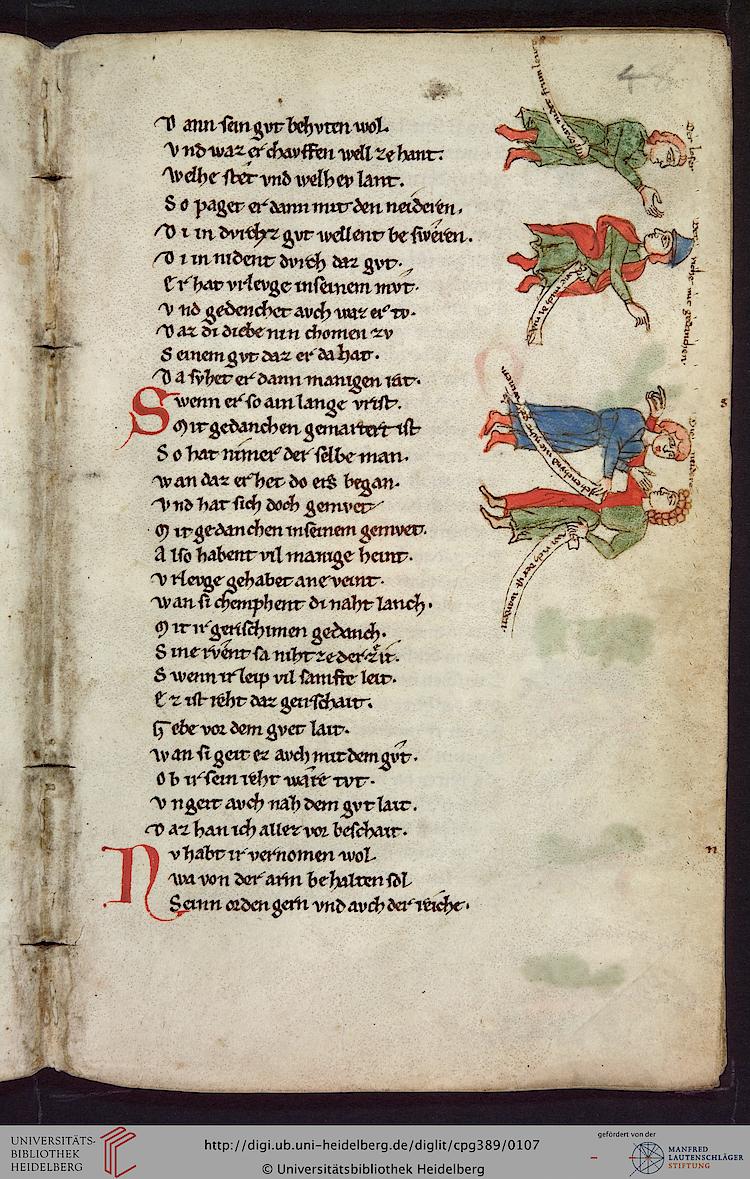 48
D ann sein gvt behvten wol
V nd waz er chavffen well ze hant.
Welhe stet vnd welhev lant.
S o paget er dann mit den neideren.
D i in dvrch gvt wellent be sweren.
D i in nident dvrch daz gvt.
E r hat vrlevge in seinem mvt.
V nd gedenchet avch waz er tv.
D az di diebe nin chomen zv
S einem gvt daz er da hat.
D a svhet er dann manigen rat.
S wenn er so ain lange vrist.
M it gedanchen gemartert ist
S o hat nimer der selbe man.
W an daz er het do ers began.
V nd hat sich doch gemvet
M it gedanchen in seinem gemvet.
A lso habent vil manige heint.
V rlevge gehabet ane veint.
W an si chemphent di naht lanch.
M it ir gerischimen gedanch.
S ine rvent sa niht ze der zit.
S wenn ir leip vil samfte leit.
E z ist reht daz geirschait.
G ebe vor dem gvet lait.
W an si geit ez avch mit dem gvt.
O b ir sein reht ware tvt.
V n geit avch nah dem gvt lait.
D az han ich allez vor beschait.
N v habt ir vernomen wol
wa von der arm behalten sol
Seinn orden gern vnd avch der reiche.
UNIVERSITÄTS-
BIBLIOTHEK
HEIDELBERG
http://digi.ub.uni-heidelberg.de/diglit/cpg389/0107
© Universitätsbibliothek Heidelberg
gefördert von der
MANFRED
LAUTENSCHLÄGER
STIFTUNG